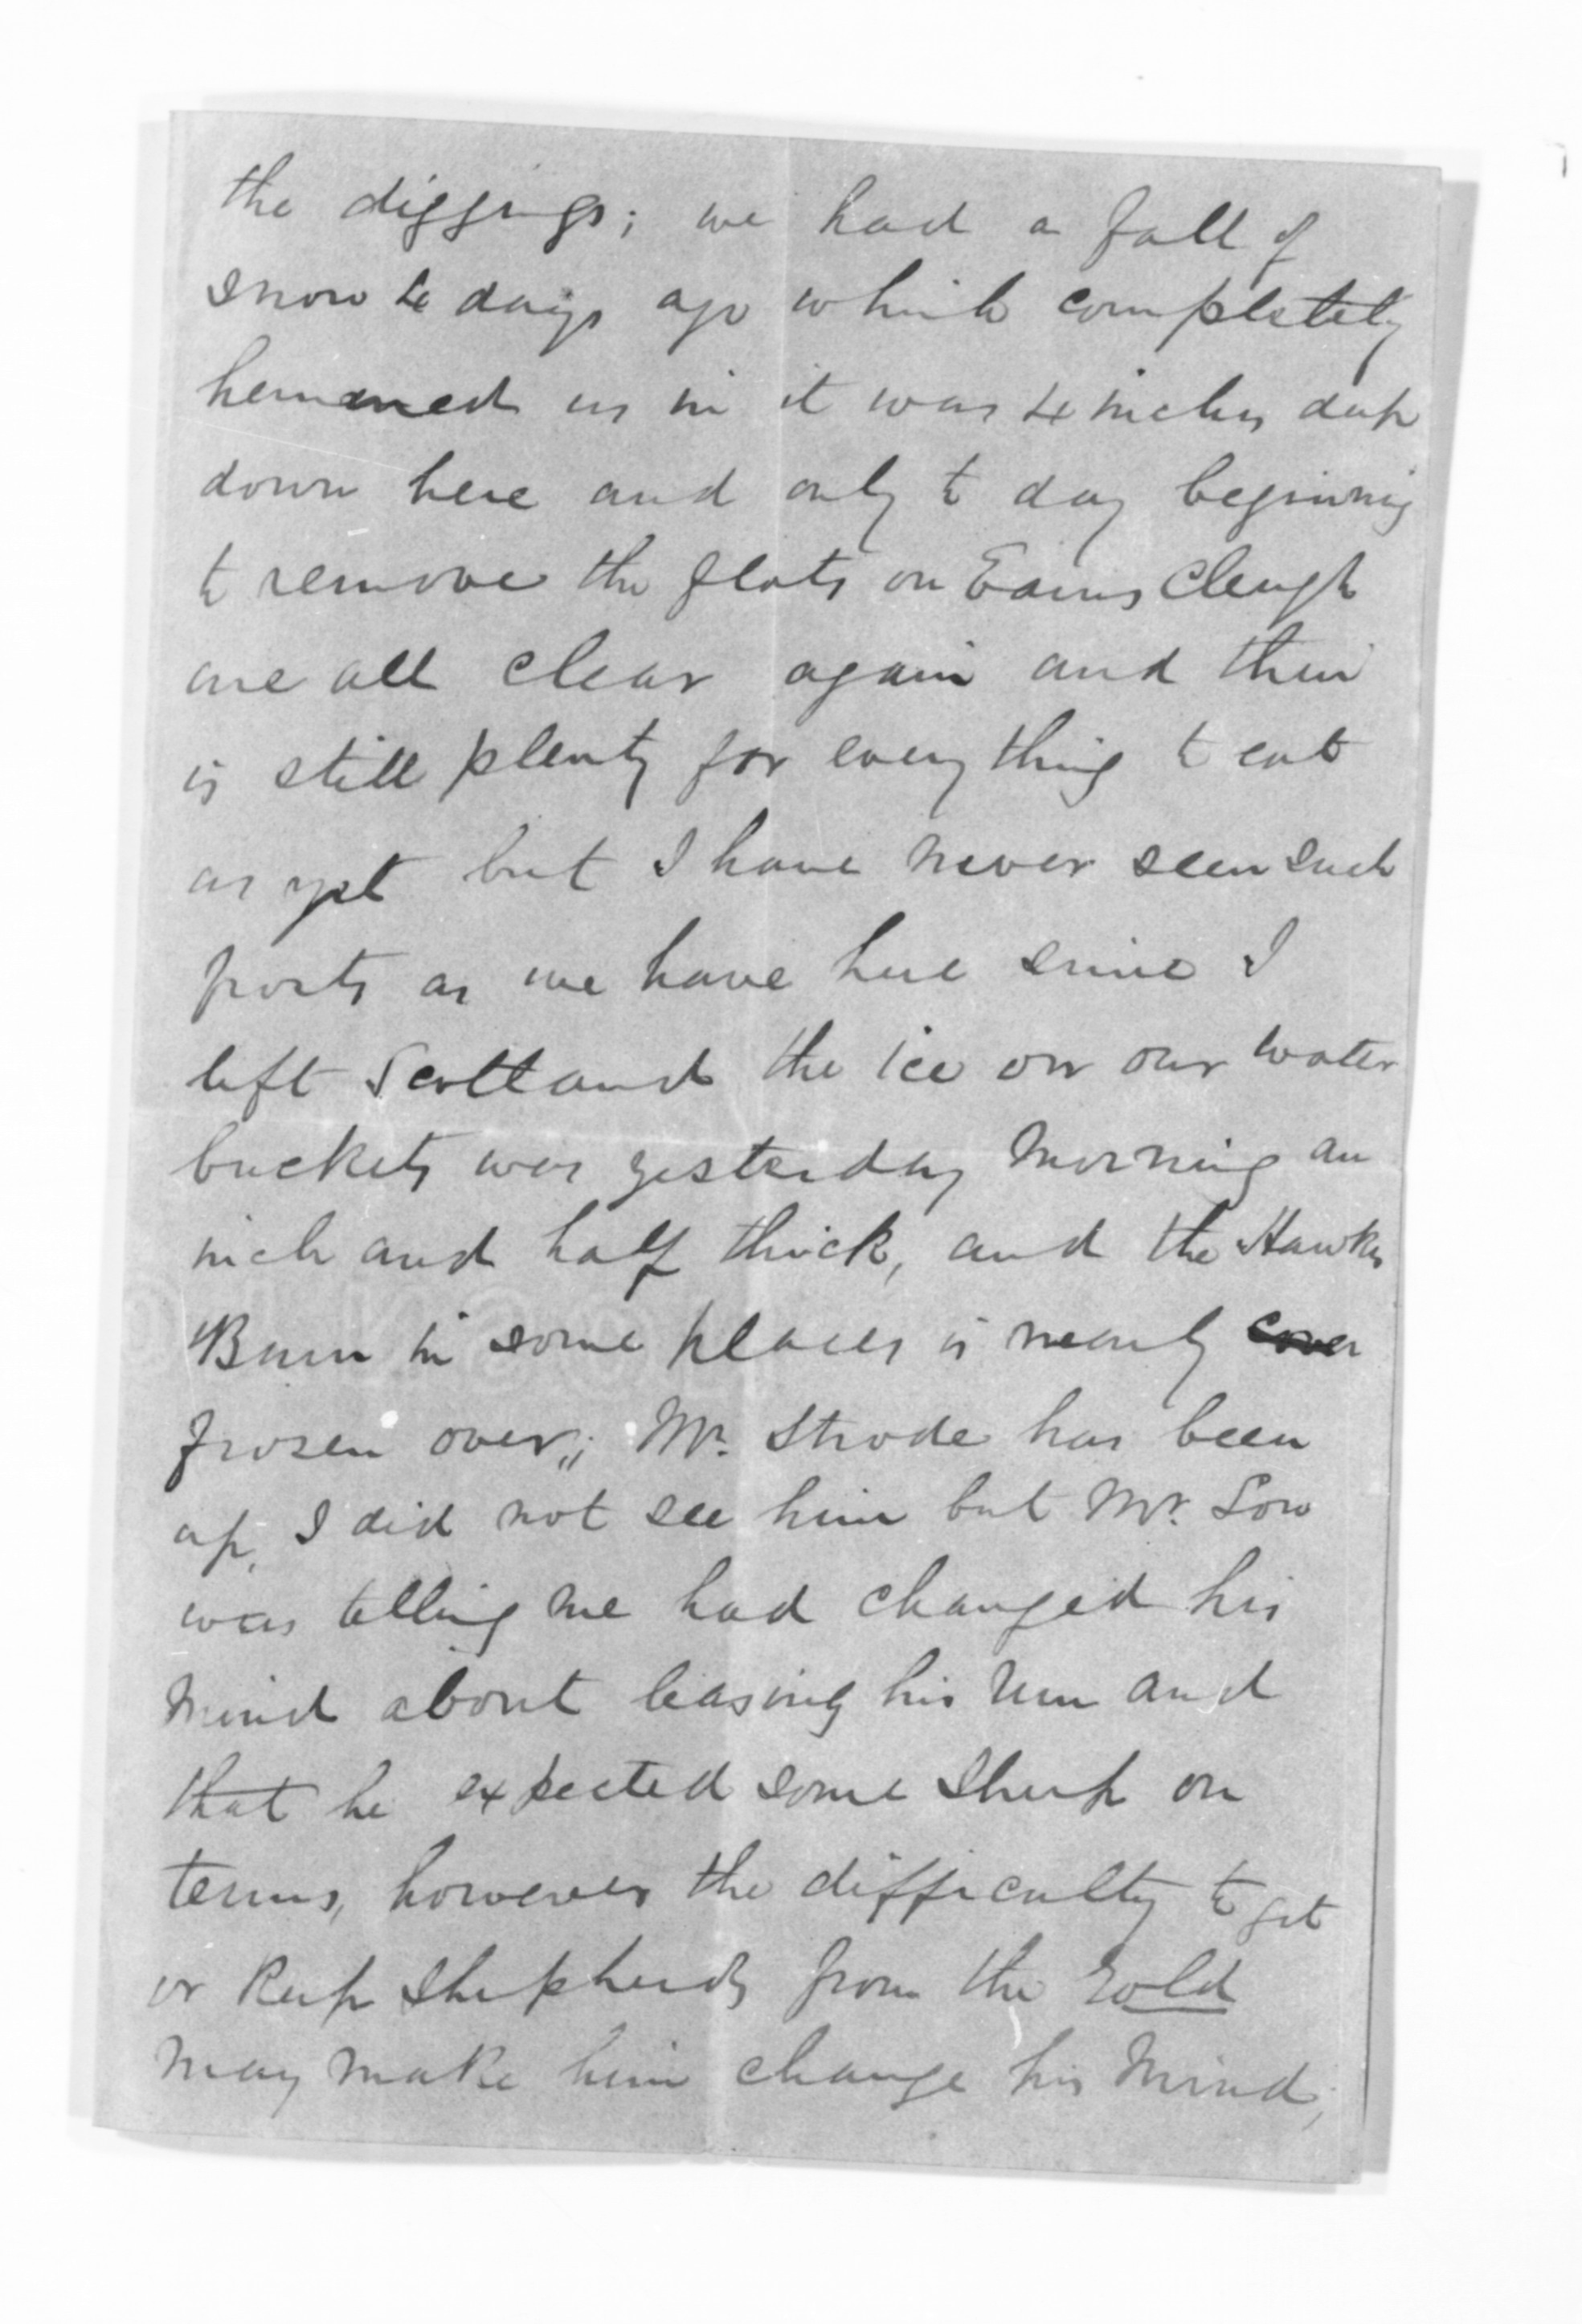 the diggings; we had a fall of
snow 4 days ago which completely
hemmed us in it was 4 inches deep
down here and only to day beginning
to remove the flats on Earnscleugh
are all clear again and their
is still plenty for everything to eat
as yet but I have never seen such
frosts as we have here since I
left Scotland the ice on our water
buckets was yesterday morning an
inch and half thick, and the Hawks
Burn in some places is nearly cover
frosen over,; Mr. Strode has been
up, I did not see him but Mr. Low
was telling me had changed his
mind about leasing his run and
that he expected some sheep on
terms, however the difficulty to get
or keep shepherds from the Gold
may make him change his mind,